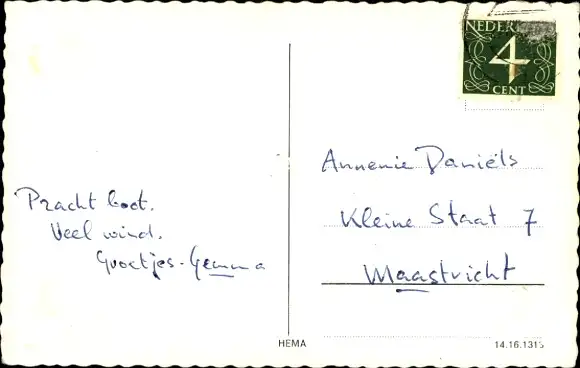 NEDERL
4
CENT
Pracht boot.
Veel wind.
Groetjes - Gemma
Annemie Daniëls
Kleine Staat 7
Maastricht
HEMA
14.16.1315